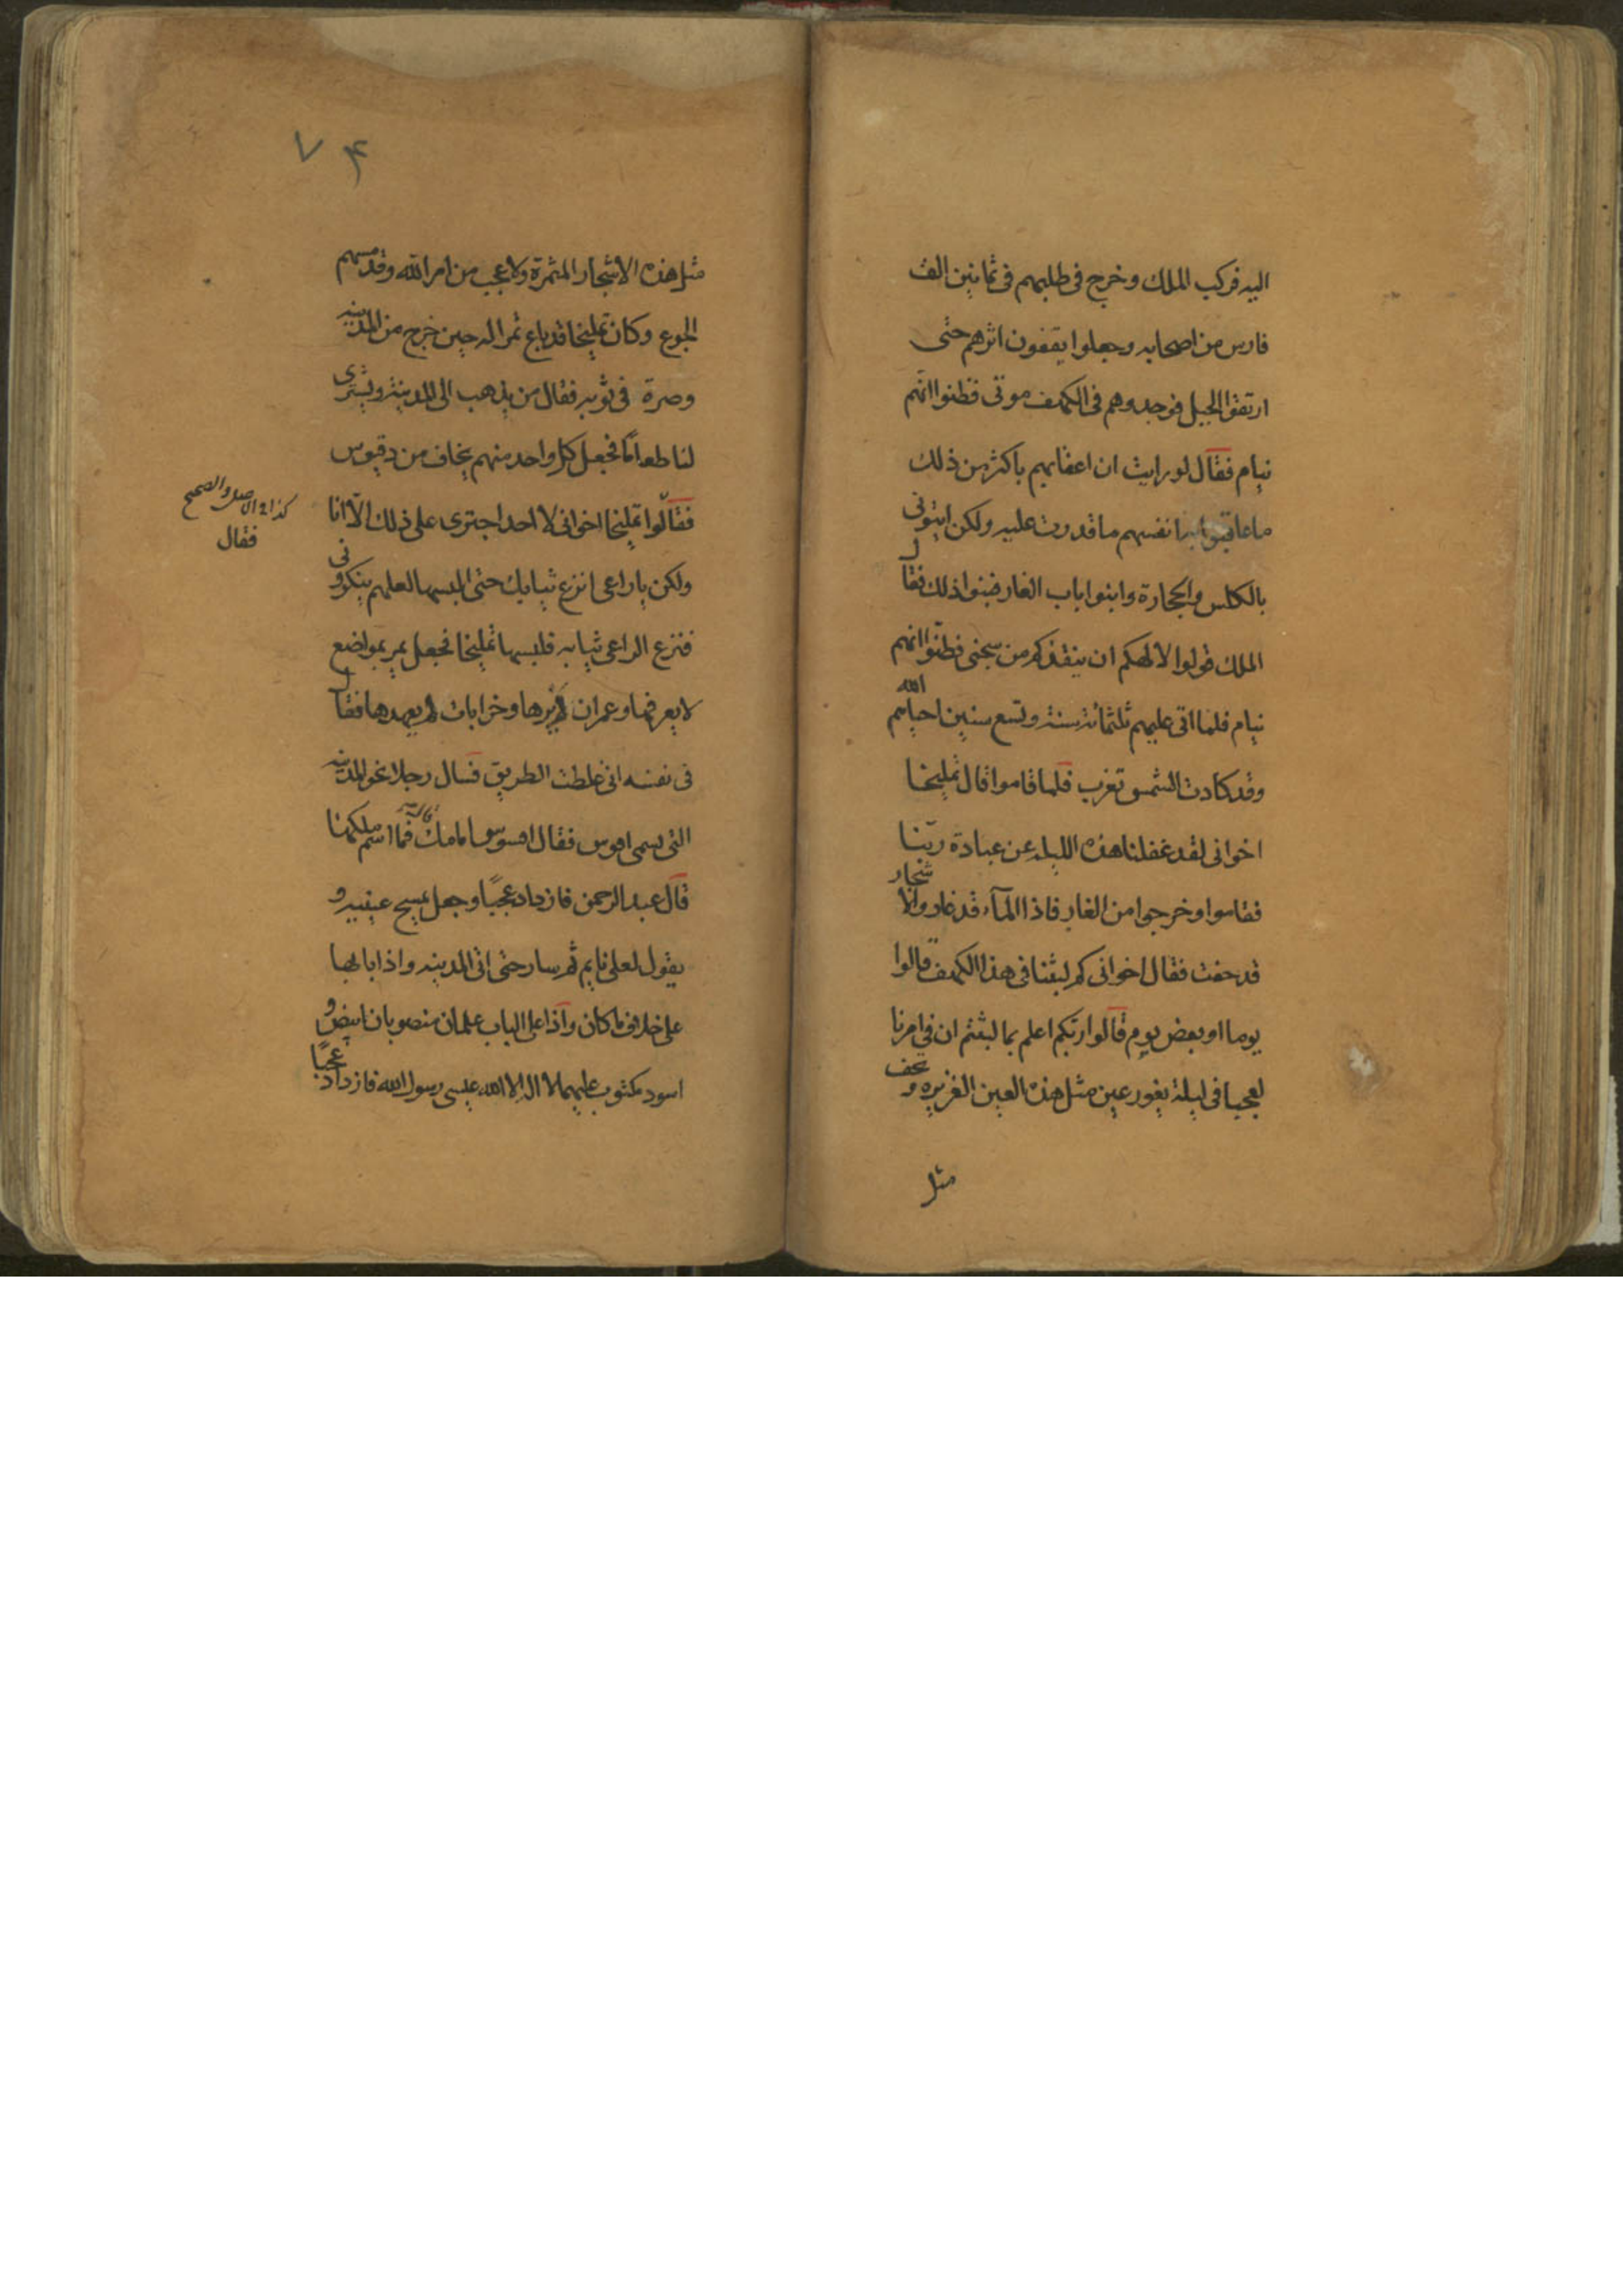 اليه فركب الملك وخرج فى طلبهم فى ثمانين الف
فارس من اصحابه وجعلوا يقفون اثرهم حتى
ارتقوا الجبل فوجدوهم فى الكهف موتى فظنوا انهم
نيام فقال لو رايت ان اعقابهم باكثر من ذلك
ما عاقبوا به انفسهم ما قدرت عليه ولكن ايتونى
بالكلس والحجارة وابنوا باب الغار فبنوا ذلك فقال
الملك قولوا لالهكم ان ينقذكم من سجنى فظنوا انهم
نيام فلما اتى عليهم ثلثمائة سنة وتسع سنين احياهم الله
وقد كادت الشمس تغرب فلما قاموا قال تمليخا
اخوانى لقد غفلنا هذه الليلة عن عبادة ربنا
فقاموا وخرجوا من الغار فاذا الماء قد غار والاشجار
قد جفت فقال اخوانى كم لبثنا فى هذا الكهف قالوا
يوما او بعض يوم قالوا ربكم اعلم بما لبثتم ان فى امرنا
لعجبا فى ليلة يغور عين مثل هذه العين الغزيره و يجف
مثل
٧٤
مثل هذه الاشجار المثمرة ولا عجب من امر الله وقد مسهم
الجوع وكان تمليخا قد باع تمرا له حين خرج من المدينه
وصرة فى ثوبه فقال من يذهب الى المدينة ويشترى
لنا طعاما فجعل كل واحد منهم يخاف من دقيوس
فقالوا تمليخا اخوانى لا احد اجترى على ذلك الا انا
كذا فى الاصل والصحيح
فقال
ولكن يا راعى انزع ثيابك حتى البسها لعلهم ينكرونى
فنزع الراعى ثيابه فلبسها تمليخا فجعل يمر بمواضع
لا يعرفها وعمران لم يرها وخرابات لم يعهدها فقال
فى نفسه انى غلطت الطريق فسال رجلا نحو المدينه
التى تسمى افوس فقال افسوس امامك قال فما اسم ملكها
قال عبد الرحمن فازداد عجبا وجعل يمسح عينيه و
يقول لعلى نايم ثم سار حتى اتى المدينه واذا بابها
على خلاف ما كان واذا على الباب علمان منصوبان ابيض و
اسود مكتوب عليهما لا اله الا الله عيسى رسول الله فازداد عجبا